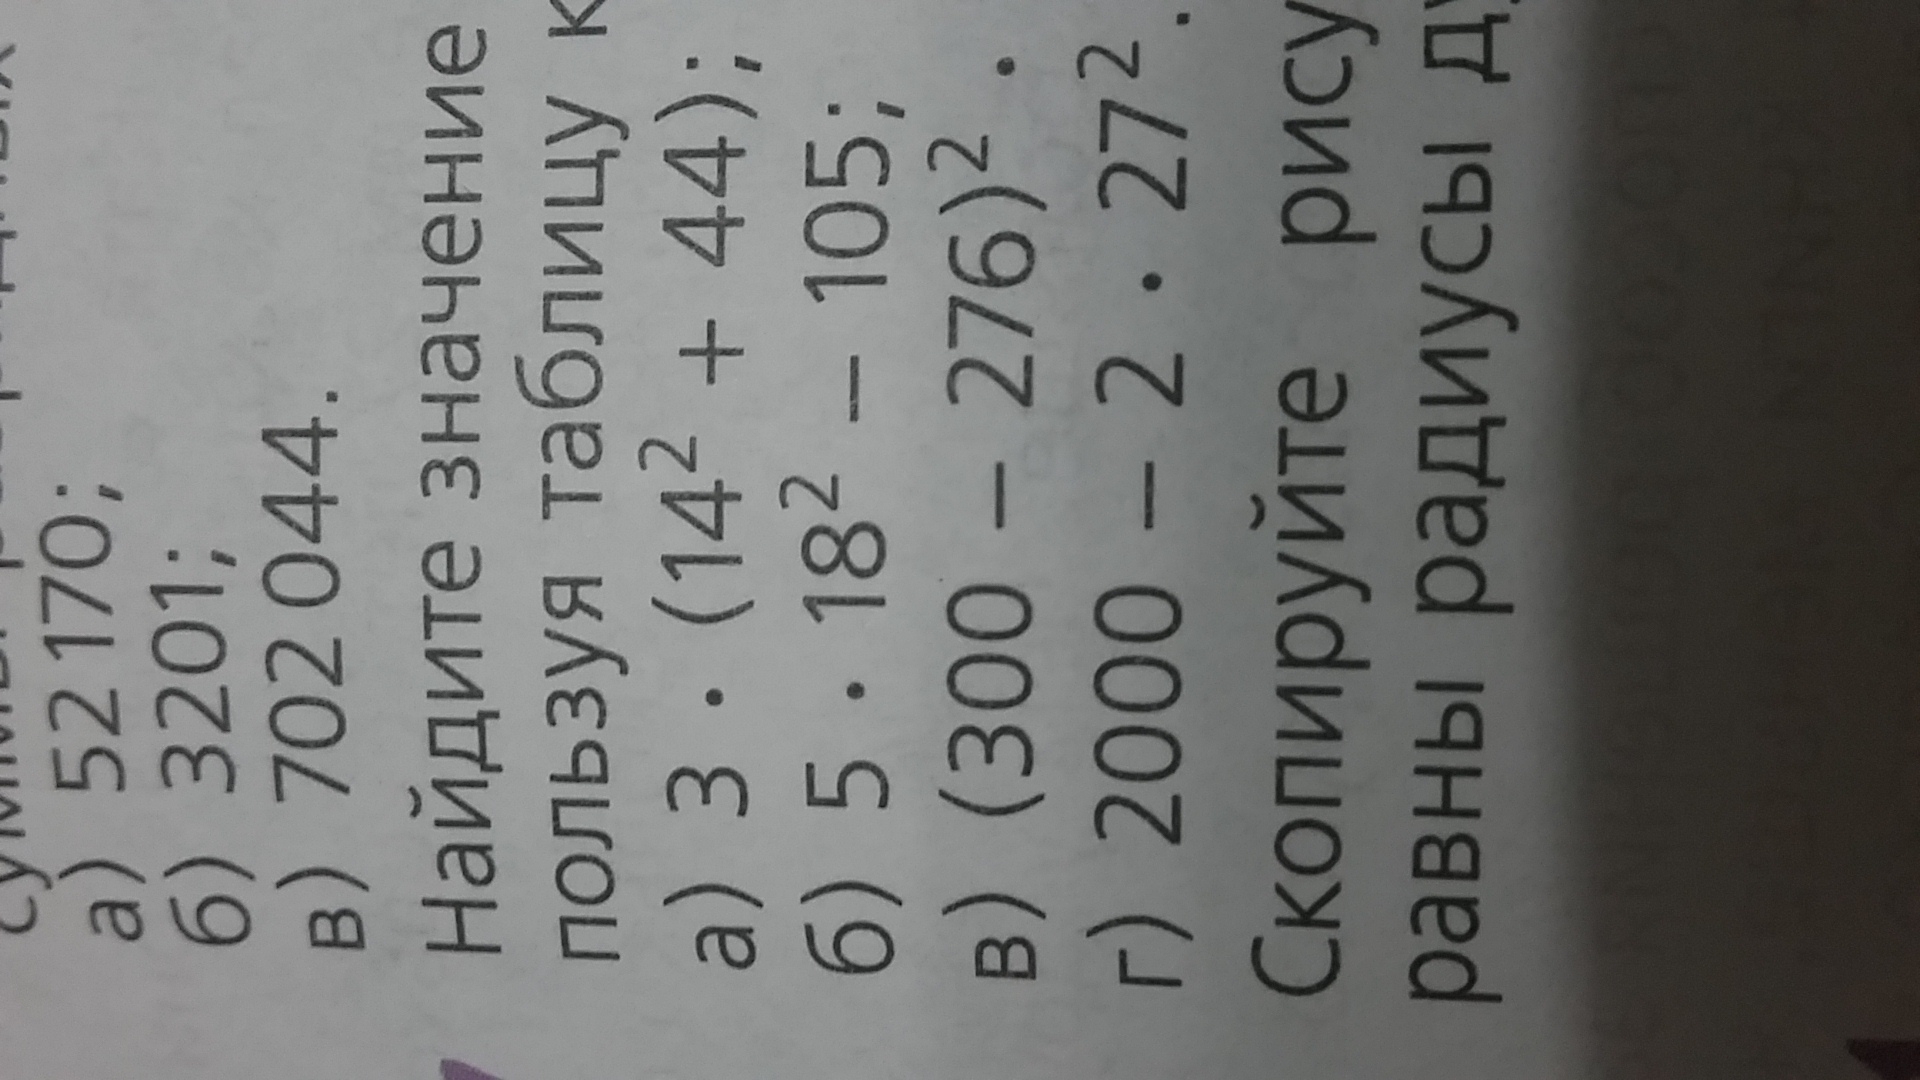 а) 52 170;
б) 3201;
в) 702 044.
Найдите значение
пользуя таблицу к
а) 3 · (14² + 44);
б) 5 · 18² – 105;
в) (300 – 276)² ·
г) 2000 – 2 · 27².
Скопируйте рису
равны радиусы ду